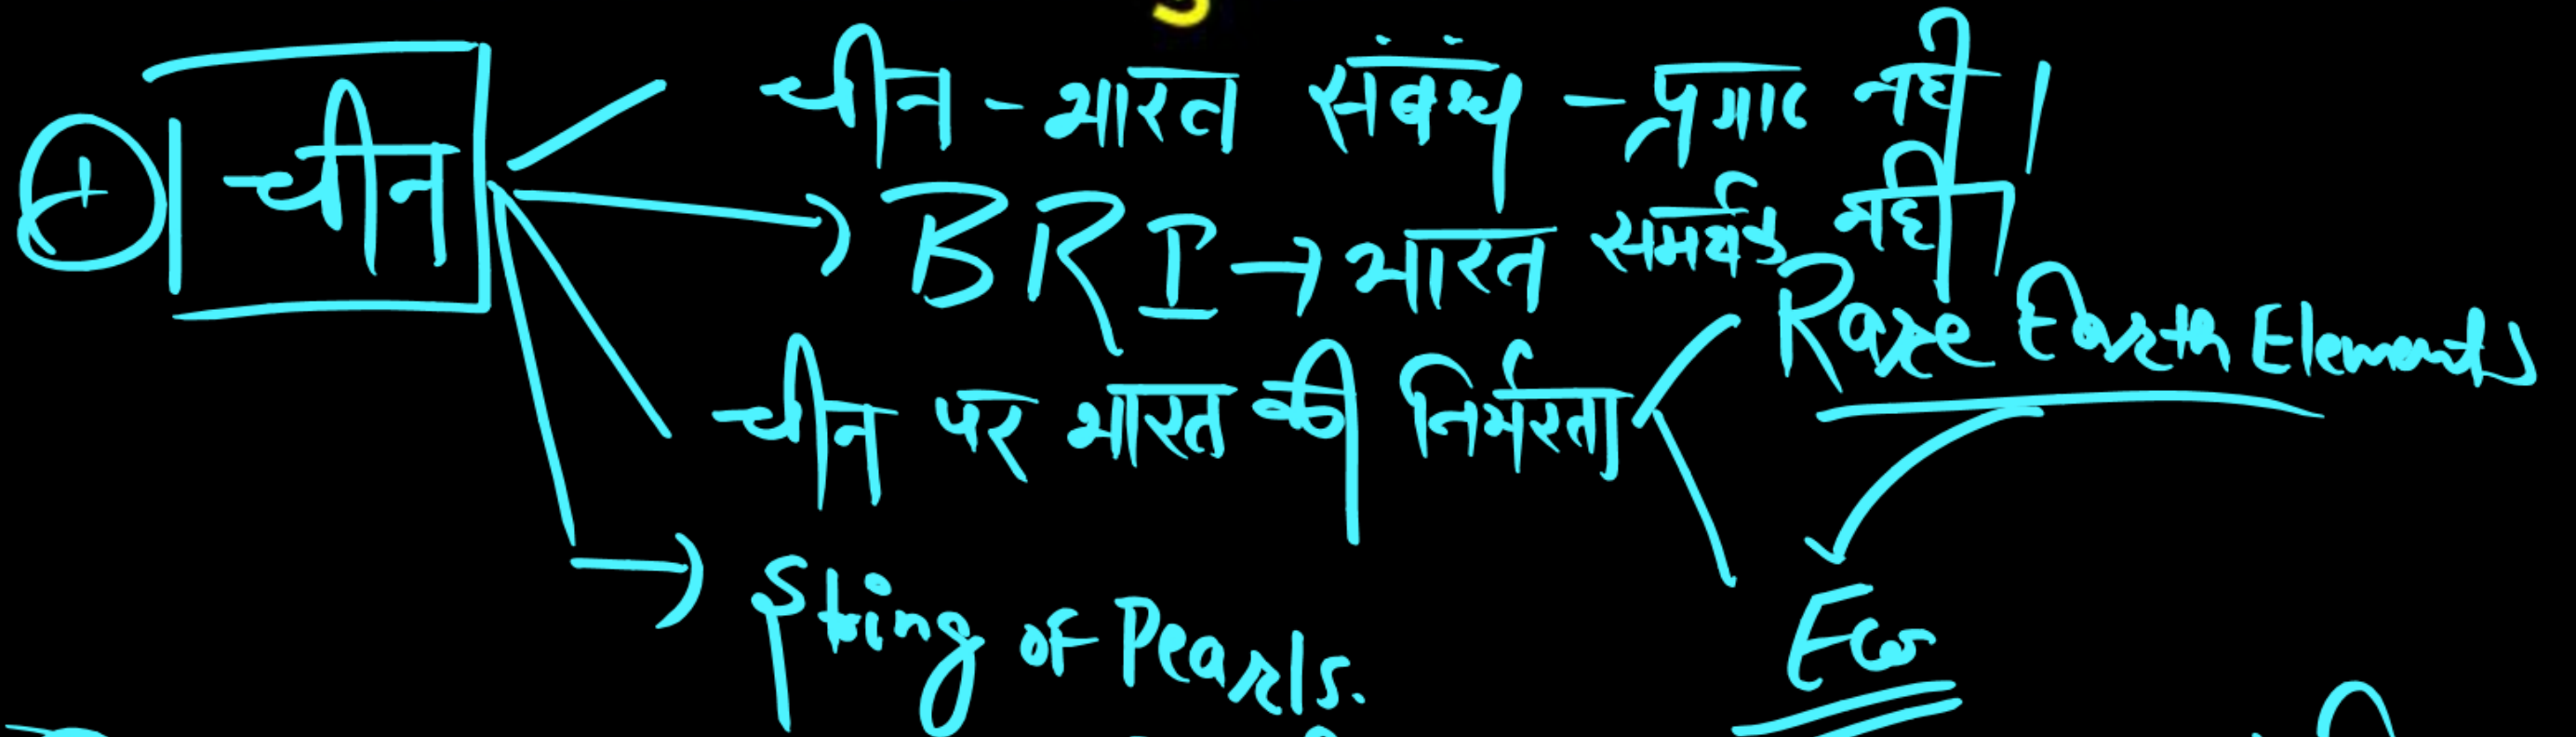 चीन
चीन - भारत संबंध - प्रगाढ़ नहीं।
BRI → भारत समर्थक नहीं।
चीन पर भारत की निर्भरता
Rare Earth Elements
Eco
String of Pearls.